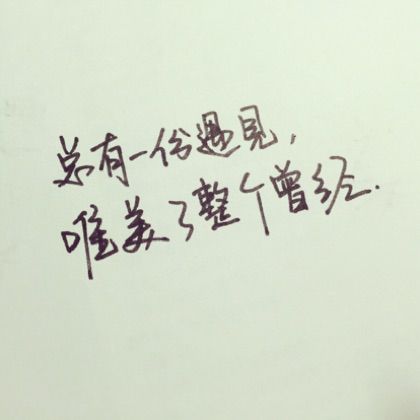 总有一份遇見，
唯美了整个曾经.